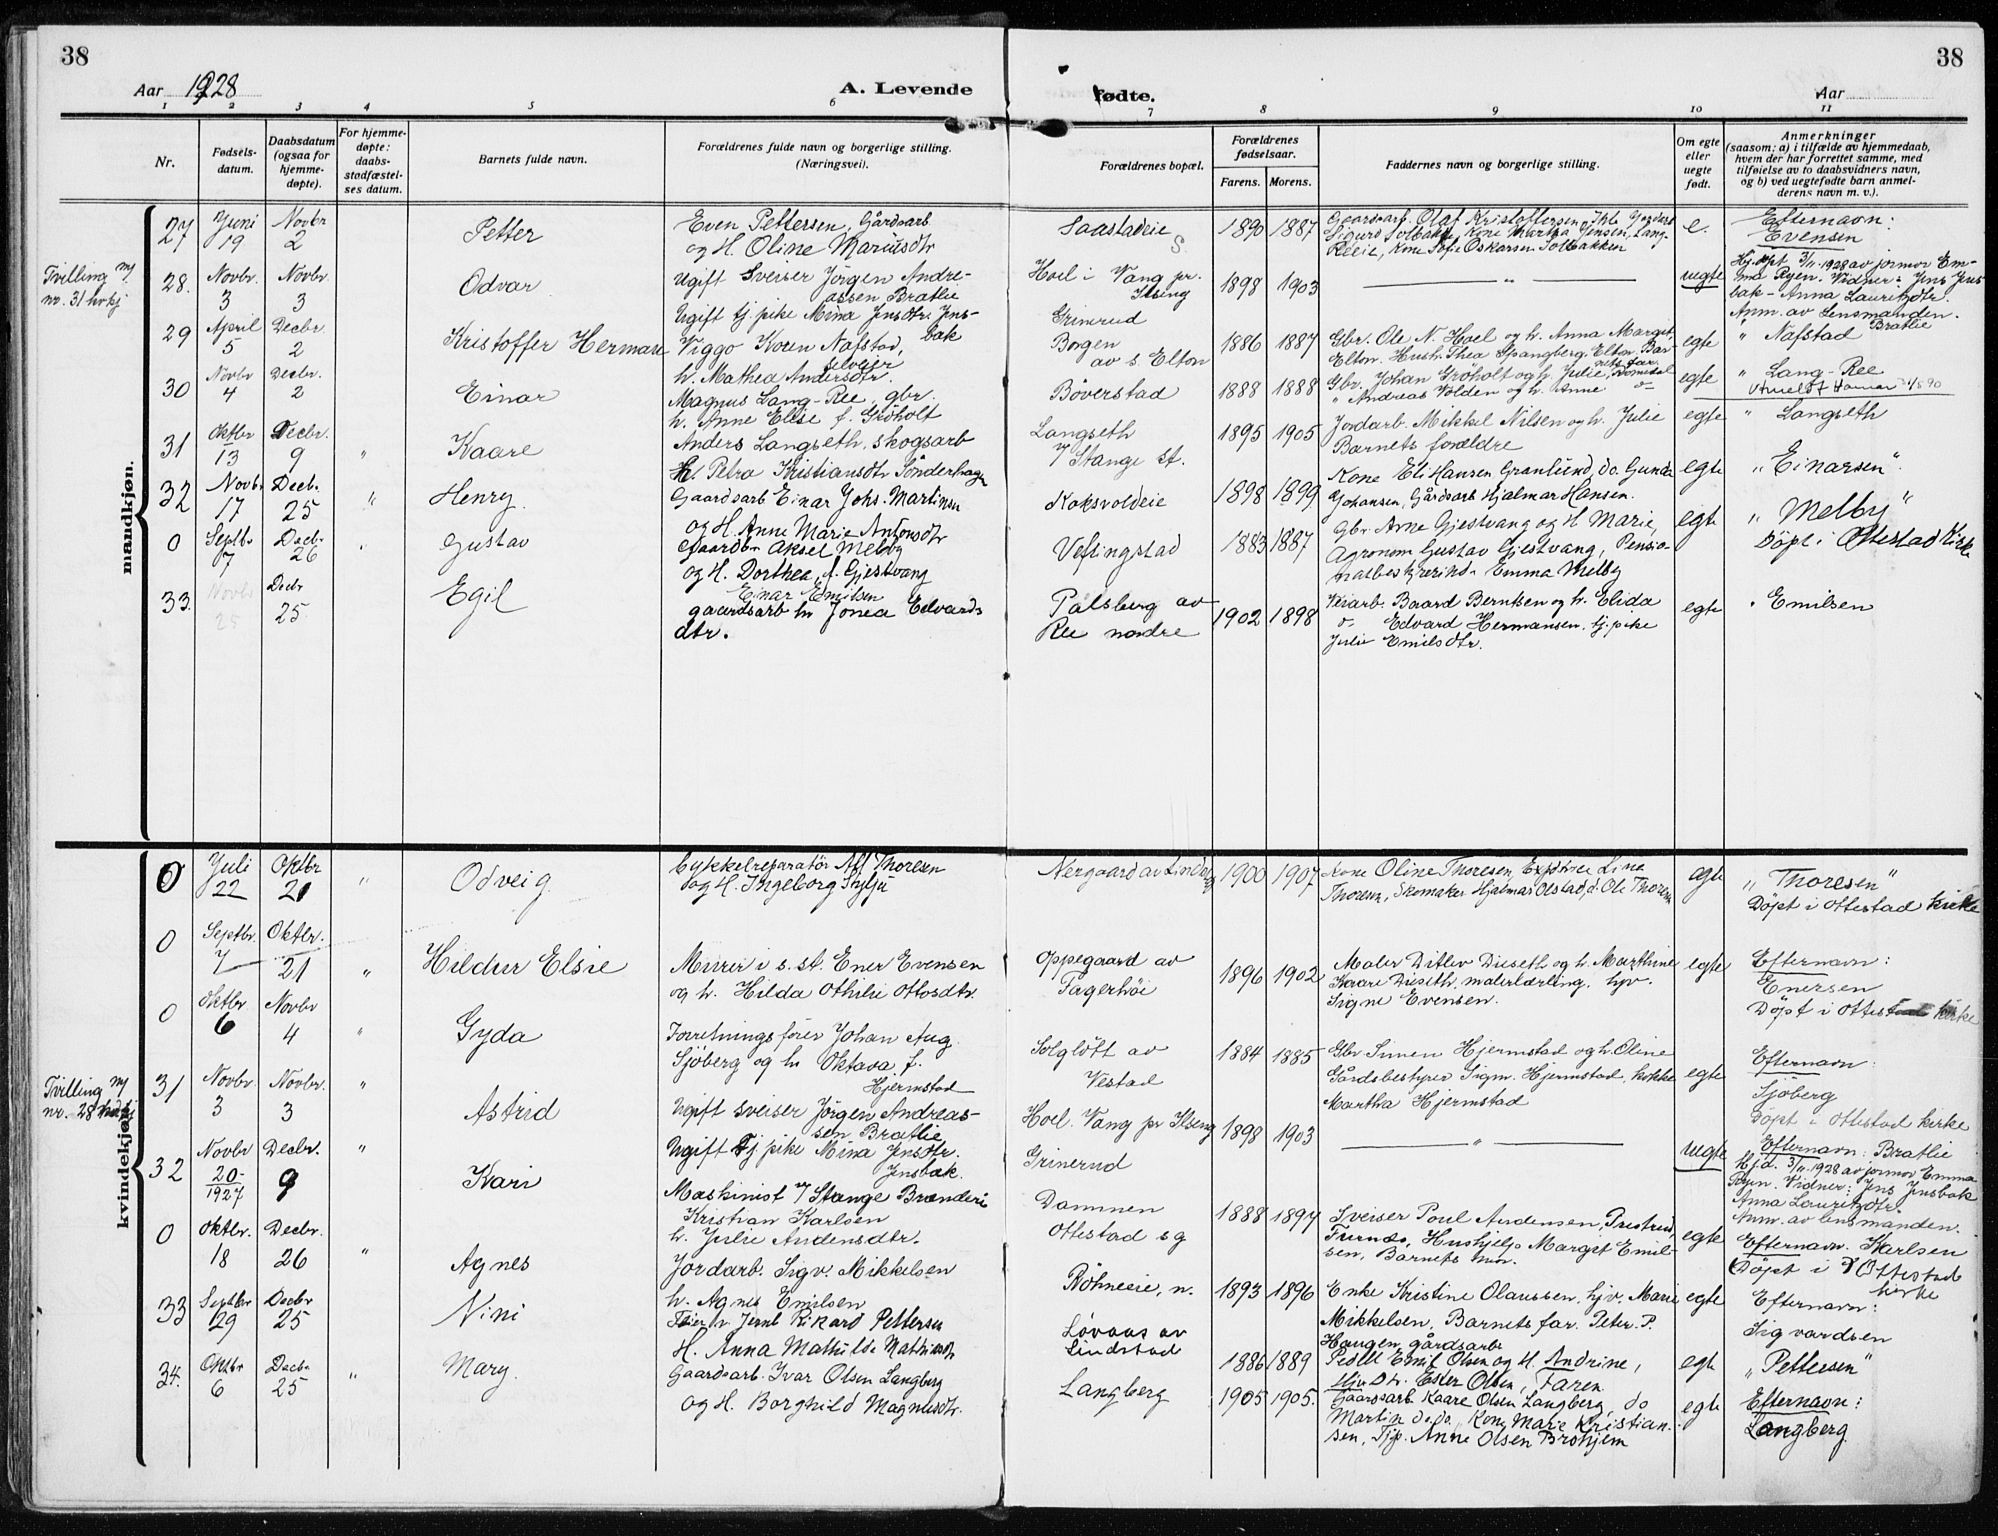 38
38
Aar 1928
A. Levende
fødte.
Aar
1 2 3 4 5 6 7 8 9 10 11
Nr.
Fødsels-
datum.
Daabsdatum
(ogsaa for
hjemme-
døpte).
For hjemme-
døpte:
daabs-
stadfæstel-
ses datum.
Barnets fulde navn.
Forældrenes fulde navn og borgerlige stilling.
(Næringsvei).
Forældrenes bopæl.
Forældrenes
fødselsaar.
Farens. Morens.
Faddernes navn og borgerlige stilling.
Om egte
eller
uegte
født.
Anmerkninger
(saasom: a) i tilfælde av hjemmedaab,
hvem der har forrettet samme, med
tilføielse av to daabsvidners navn,
og b) ved uegtefødte barn anmel-
derens navn m. v.).
mandkjøn.
27 Juni 19 Novbr 2
Petter
Even Pettersen, Gårdsarb
og H. Oline Mariusdtr
Saastadeie
S.
1890 1887
Gaardsarb. Olaf Kristoffersen,
Sigurd Solbakk, Kone Martha Jensen, Lang-
Reeie, Kone Sofie Oskarsen Solbakken
e.
Efternavn:
Evensen
Tvilling m/
nr. 31 kvkj
28. Novbr. 3 Novbr. 3
Odvar
Ugift Sveiser Jörgen Andre-
assen Bratlie
Ugift tj. pike Mina Jensdtr. Jens-
bak
Hoel i Vang pr.
Ilseng
Grinerud
1898 1903
uegte
Hj.döpt 3/11 1928 av jormor Em-
ma Ryen. Vidner: Jens Jens-
bak - Anna Lauritzdtr.
Anm. av Lensmanden.
" Bratlie
29 April 5 Decbr. 2
Kristoffer Herman
Viggo Koren Nafstad,
h. Mathea Andersdtr.
Borgen
av s. Elton
1886 1887
Gbr. Ole N. Hoel og h. Anna Margit,
Elton. Hush. Thea Spangberg, Elton. Bar-
egte
Nafstad
30 Novbr 4 Decbr. 2
Einar
Magnus Lang-Ree, gbr.
h. Anne Elise f. Gröholt
Böverstad
1888 1888
Gbr. Johan Gröholt og h. Julie, Romedal
" Andreas Volden og h. Anne
egte
" Lang-Ree
31 Oktbr 13 Decbr. 9 "
Kaare
Anders Langseth, skogsarb
H. Petra Kristiansdtr Sönderhagen
Langseth
7 Stange st.
1895 1905
Jordarb. Mikkel Nilsen og h. Julie
Barnets forældre
egte
" Langseth
32 Novbr 17 Decb. 25 "
Henry.
Gaardsarb Einar Johs. Martinsen
og H. Anne Marie Antonsdtr
Koksvoldeie
1898 1899
Kone Eli Hansen Granlund, do. Gunda
Johansen, Gårdsarb Hjalmar Hansen.
egte
" Einarsen".
0 Septbr 7 Decbr 26
Gustav
Gaardbr Aksel Melby
og H. Dorthea, f. Gjestvang
Veflingstad
1883 1887
Gbr. Arne Gjestvang og H Marie,
Agronom Gustav Gjestvang, Pensio-
natbestyrerinde Emma Melby
egte
" Melby"
Döpt i Ottestad Kirke
33. Novbr 25 Decbr 25.
Egil
Einar Emilsen
gaardsarb h. Jonea Edvards
dtr.
Palsberg av
Ree nordre
1902 1898
Veiarb. Baard Berntsen og h. Elida
" Edvard Hermansen, tj. pike
Julie Emilsdtr.
egte
" Emilsen
kvindekjøn.
0 Juli 22 Oktbr 21 "
Odveig.
Cykkelreparatör Alf Thoresen
og H. Ingeborg
Nergaard av Lindberg
1900 1907
Kone Oline Thoresen, Line
Thoresen, Skomaker Hjalmar Olstad, d. Ole Thoresen
egte
" Thoresen"
Döpt i Ottestad kirke
0 Septbr. 7 Oktbr. 21 "
Hildur Elsie
Murer i s. st. Ener Evensen
og h. Hilda Othilie Ottosdtr.
Oppegaard av
Fagerhöi
1896 1902
Maler Ditlev Diseth og h. Marthine
Kaare Diseth, malerlærling, hjv.
Signe Evensen.
egte
Efternavn:
Enersen
Döpt i Ottestad kirke
0 Oktbr 6 Novbr 4 "
Gyda
Forretningsförer Johan Aug.
Sjöberg og h. Oktava f.
Hjermstad
Solglött av
Vestad
1884 1885
Gbr Simen Hjermstad og h. Oline
Gårdsbestyrer Sigm. Hjermstad, kokke
Martha Hjermstad
egte
Efternavn:
Sjöberg
Döpt i Ottestad kirke
Tvilling m/
nr. 28 mdkj
31 Novbr. 3 Novbr. 3 "
Astrid
Ugift sveiser Jörgen Andreas-
sen Bratlie
Ugift Tj. pike Mina Jensdtr.
Jensbak.
Hoel. Vang pr Ilseng
Grinerud
1898 1903
uegte
Efternavn: Bratlie
Hj.d. 3/11. 1928 av jormor Emma
Ryen. Vidner: Jens Jensbak
Anna Lauritzdtr.
Anm. av lensmanden.
32 Novbr 20 1927 Decbr. 9 "
Kari
Maskinist 7 Stange Brænderi
Kristian Karlsen
h. Julie Andersdtr.
Dammen
Ottestad sg
1888 1897
Sveiser Poul Andersen, Prestrud,
Furnes, Hushjelp Margit Emil-
sen, Barnets mor.
egte
Efternavn. Karlsen
Döpt i Ottestad
kirke
0 Oktbr. 18 Decbr. 26 "
Agnes
Jordarb. Sigv. Mikkelsen
h. Agnes Emilsen
Röhneeie, n.
1893 1896
Enke Kristine Olaussen, hjv. Marie
Mikkelsen, Barnets far. Peter P.
Haugen, gårdsarb.
egte
Efternavn:
Sigvardsen
33 Septbr 29 Decbr 25
Nini
Feier v. Jernb Rikard Pettersen
H. Anna Mathilde Mathisdtr
Lövaas av
Lindstad
1886 1889
Pedell Emil Olsen og H. Andrine,
Hjv. Dtr. Ester Olsen, Faren
egte
" Pettersen"
34. Oktbr 6 Decbr 25 "
Mary.
Gaardsarb. Ivar Olsen Langberg
og H. Borghild Magnusdtr.
Langberg
1905 1905.
Gaardsarb Kaare Olsen Langberg, do
Martin do do. Kone Marie Kristian-
sen, Tjp. Anne Olsen Brohjem
egte
Efternavn:
Langberg